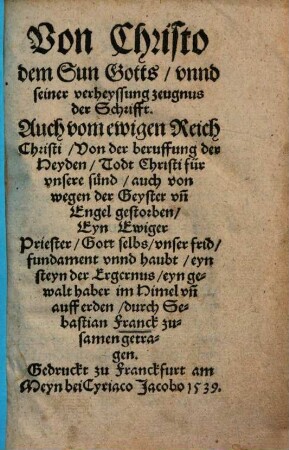 Von Christo
dem Sun Gotts / vnnd
seiner verheyssung zeugnus
der Schrifft.
Auch vom ewigen Reich
Christi / Von der beruffung der
Heyden / Todt Christi für
vnsere sünd / auch von
wegen der Geyster vñ
Engel gestorben /
Eyn Ewiger
Priester / Gott selbs / vnser frid /
fundament vnnd haubt / eyn
steyn der Ergernus / eyn ge-
walt haber im Himel vñ
auff erden / durch Se-
bastian Franck zu-
samen getra-
gen.
Gedruckt zu Franckfurt am
Meyn bei Cyriaco Jacobo 1539.